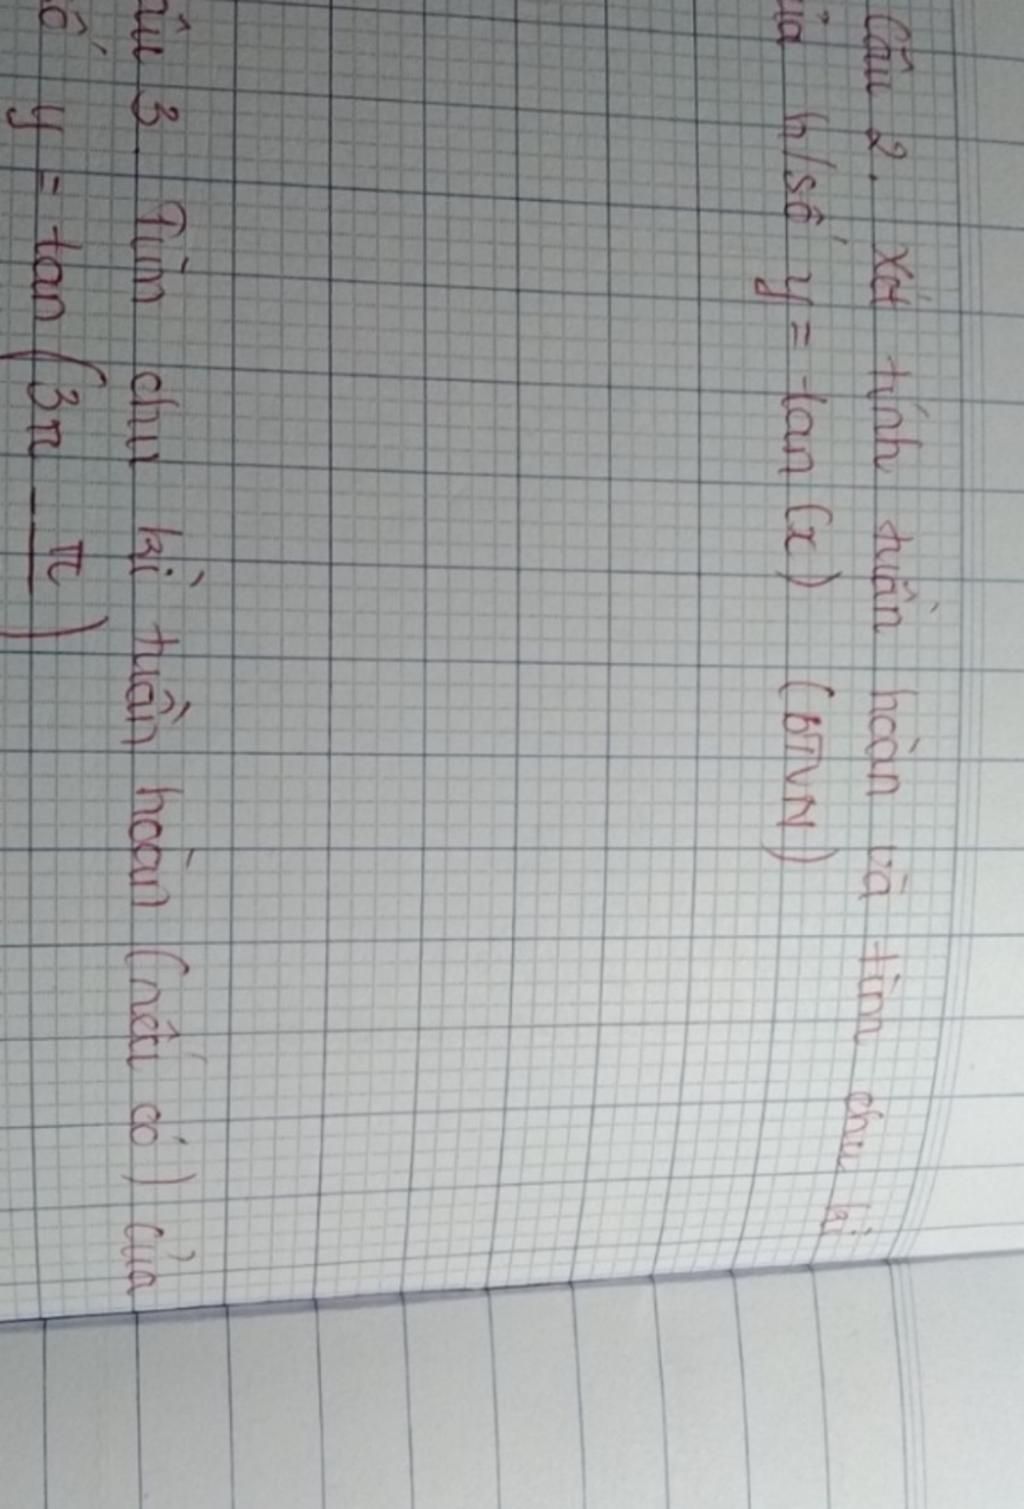 Câu 2. Xét tính tuần hoàn và tìm chu kì
của h/số y = tan (x) (BTVN)
Câu 3. Tìm chu kì tuần hoàn (nếu có) của
số y = tan (3x - π